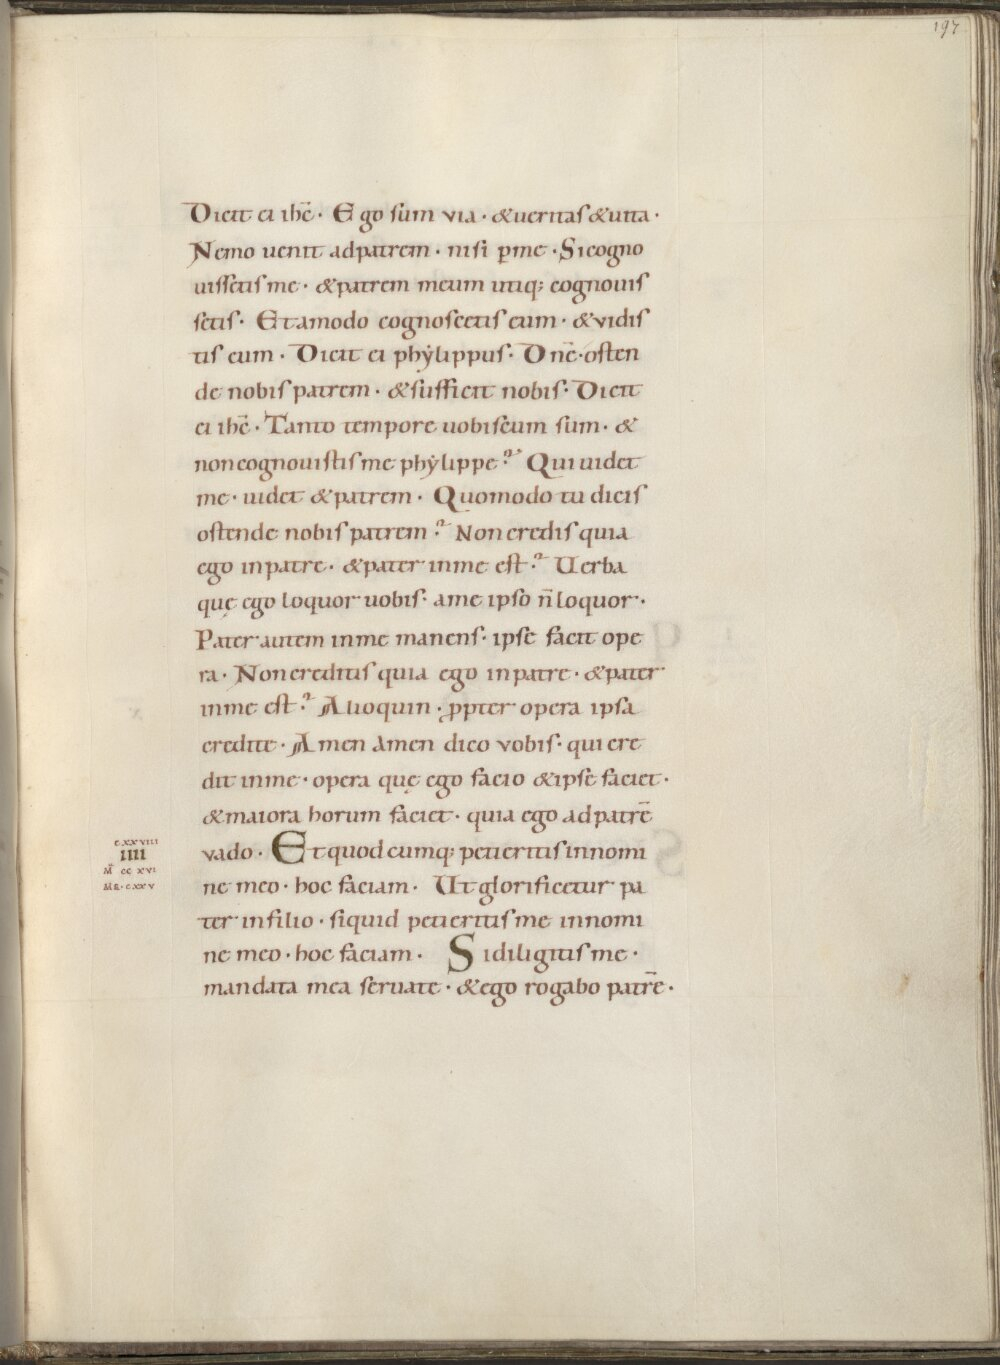 197
Dicit ei ihc̄· Ego sum via· & ueritas & uita·
Nemo uenit ad patrem· nisi ꝑ me· Si cogno
uissetis me· & patrem meum utiq; cognouis
setis· Et amodo cognoscetis eum· & vidis
tis eum· Dicit ei phẏlippus· Dn̄e· osten
de nobis patrem· & sufficit nobis· Dicit
ei ihc̄· Tanto tempore uobiscum sum· &
non cognouistis me phẏlippe? Qui uidet
me· uidet & patrem· Quomodo tu dicis
ostende nobis patrem? Non credis quia
ego in patre· & pater in me est? Uerba
quę ego loquor uobis· a me ipso n̄ loquor·
Pater autem in me manens· ipse facit ope
ra· Non creditis quia ego in patre· & pater
in me est? Alioquin· ꝓpter opera ipsa
credite· Amen amen dico vobis· qui cre
dit in me· opera quę ego facio & ipse faciet·
& maiora horum faciet· quia ego ad patrē
vado· Et quodcumq; petieritis in nomi
ne meo· hoc faciam· Ut glorificetur pa
ter in filio· siquid petieritis me in nomi
ne meo· hoc faciam· Si diligitis me·
mandata mea seruate· & ego rogabo patrē·
CXXVIII
IIII
M̄ CC XVI
MR· CXXV